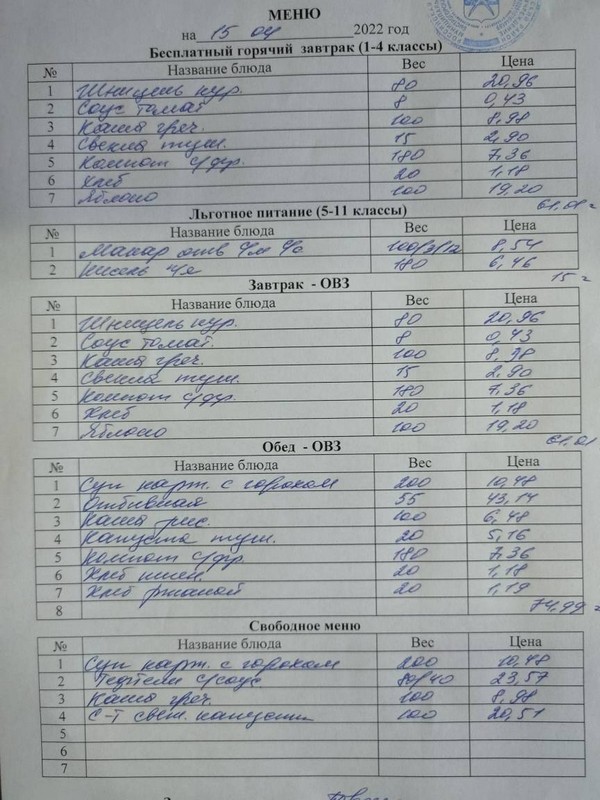 МЕНЮ
на 15 04 2022 год
Бесплатный горячий завтрак (1-4 классы)
№ Название блюда Вес Цена
1 Шницель кур. 80 20,96
2 Соус томат 8 0,43
3 Каша греч. 100 8,98
4 Свекла туш. 15 2,90
5 Компот с/фр. 180 7,36
6 Хлеб 20 1,18
7 Яблоко 100 19,20
61,01
Льготное питание (5-11 классы)
№ Название блюда Вес Цена
1 Макар отв 8,54
2 Кисель 180 6,46
15
Завтрак - ОВЗ
№ Название блюда Вес Цена
1 Шницель кур. 80 20,96
2 Соус томат. 8 0,43
3 Каша греч. 100 8,98
4 Свекла туш. 15 2,90
5 Компот с/фр. 180 7,36
6 Хлеб 20 1,18
7 Яблоко 100 19,20
61,01
Обед - ОВЗ
№ Название блюда Вес Цена
1 Суп карт. с горохом 200 10,48
2 Отбивная 55 43,14
3 Каша рис. 100 6,48
4 Капуста туш. 20 5,16
5 Компот с/фр. 180 7,36
6 Хлеб пшен. 20 1,18
7 Хлеб ржаной 20 1,19
8 74,99
Свободное меню
№ Название блюда Вес Цена
1 Суп карт. с горохом 200 10,48
2 Тефтели с/соус 80/40 23,57
3 Каша греч. 100 8,98
4 С-т свеж. капусты 100 20,51
5
6
7